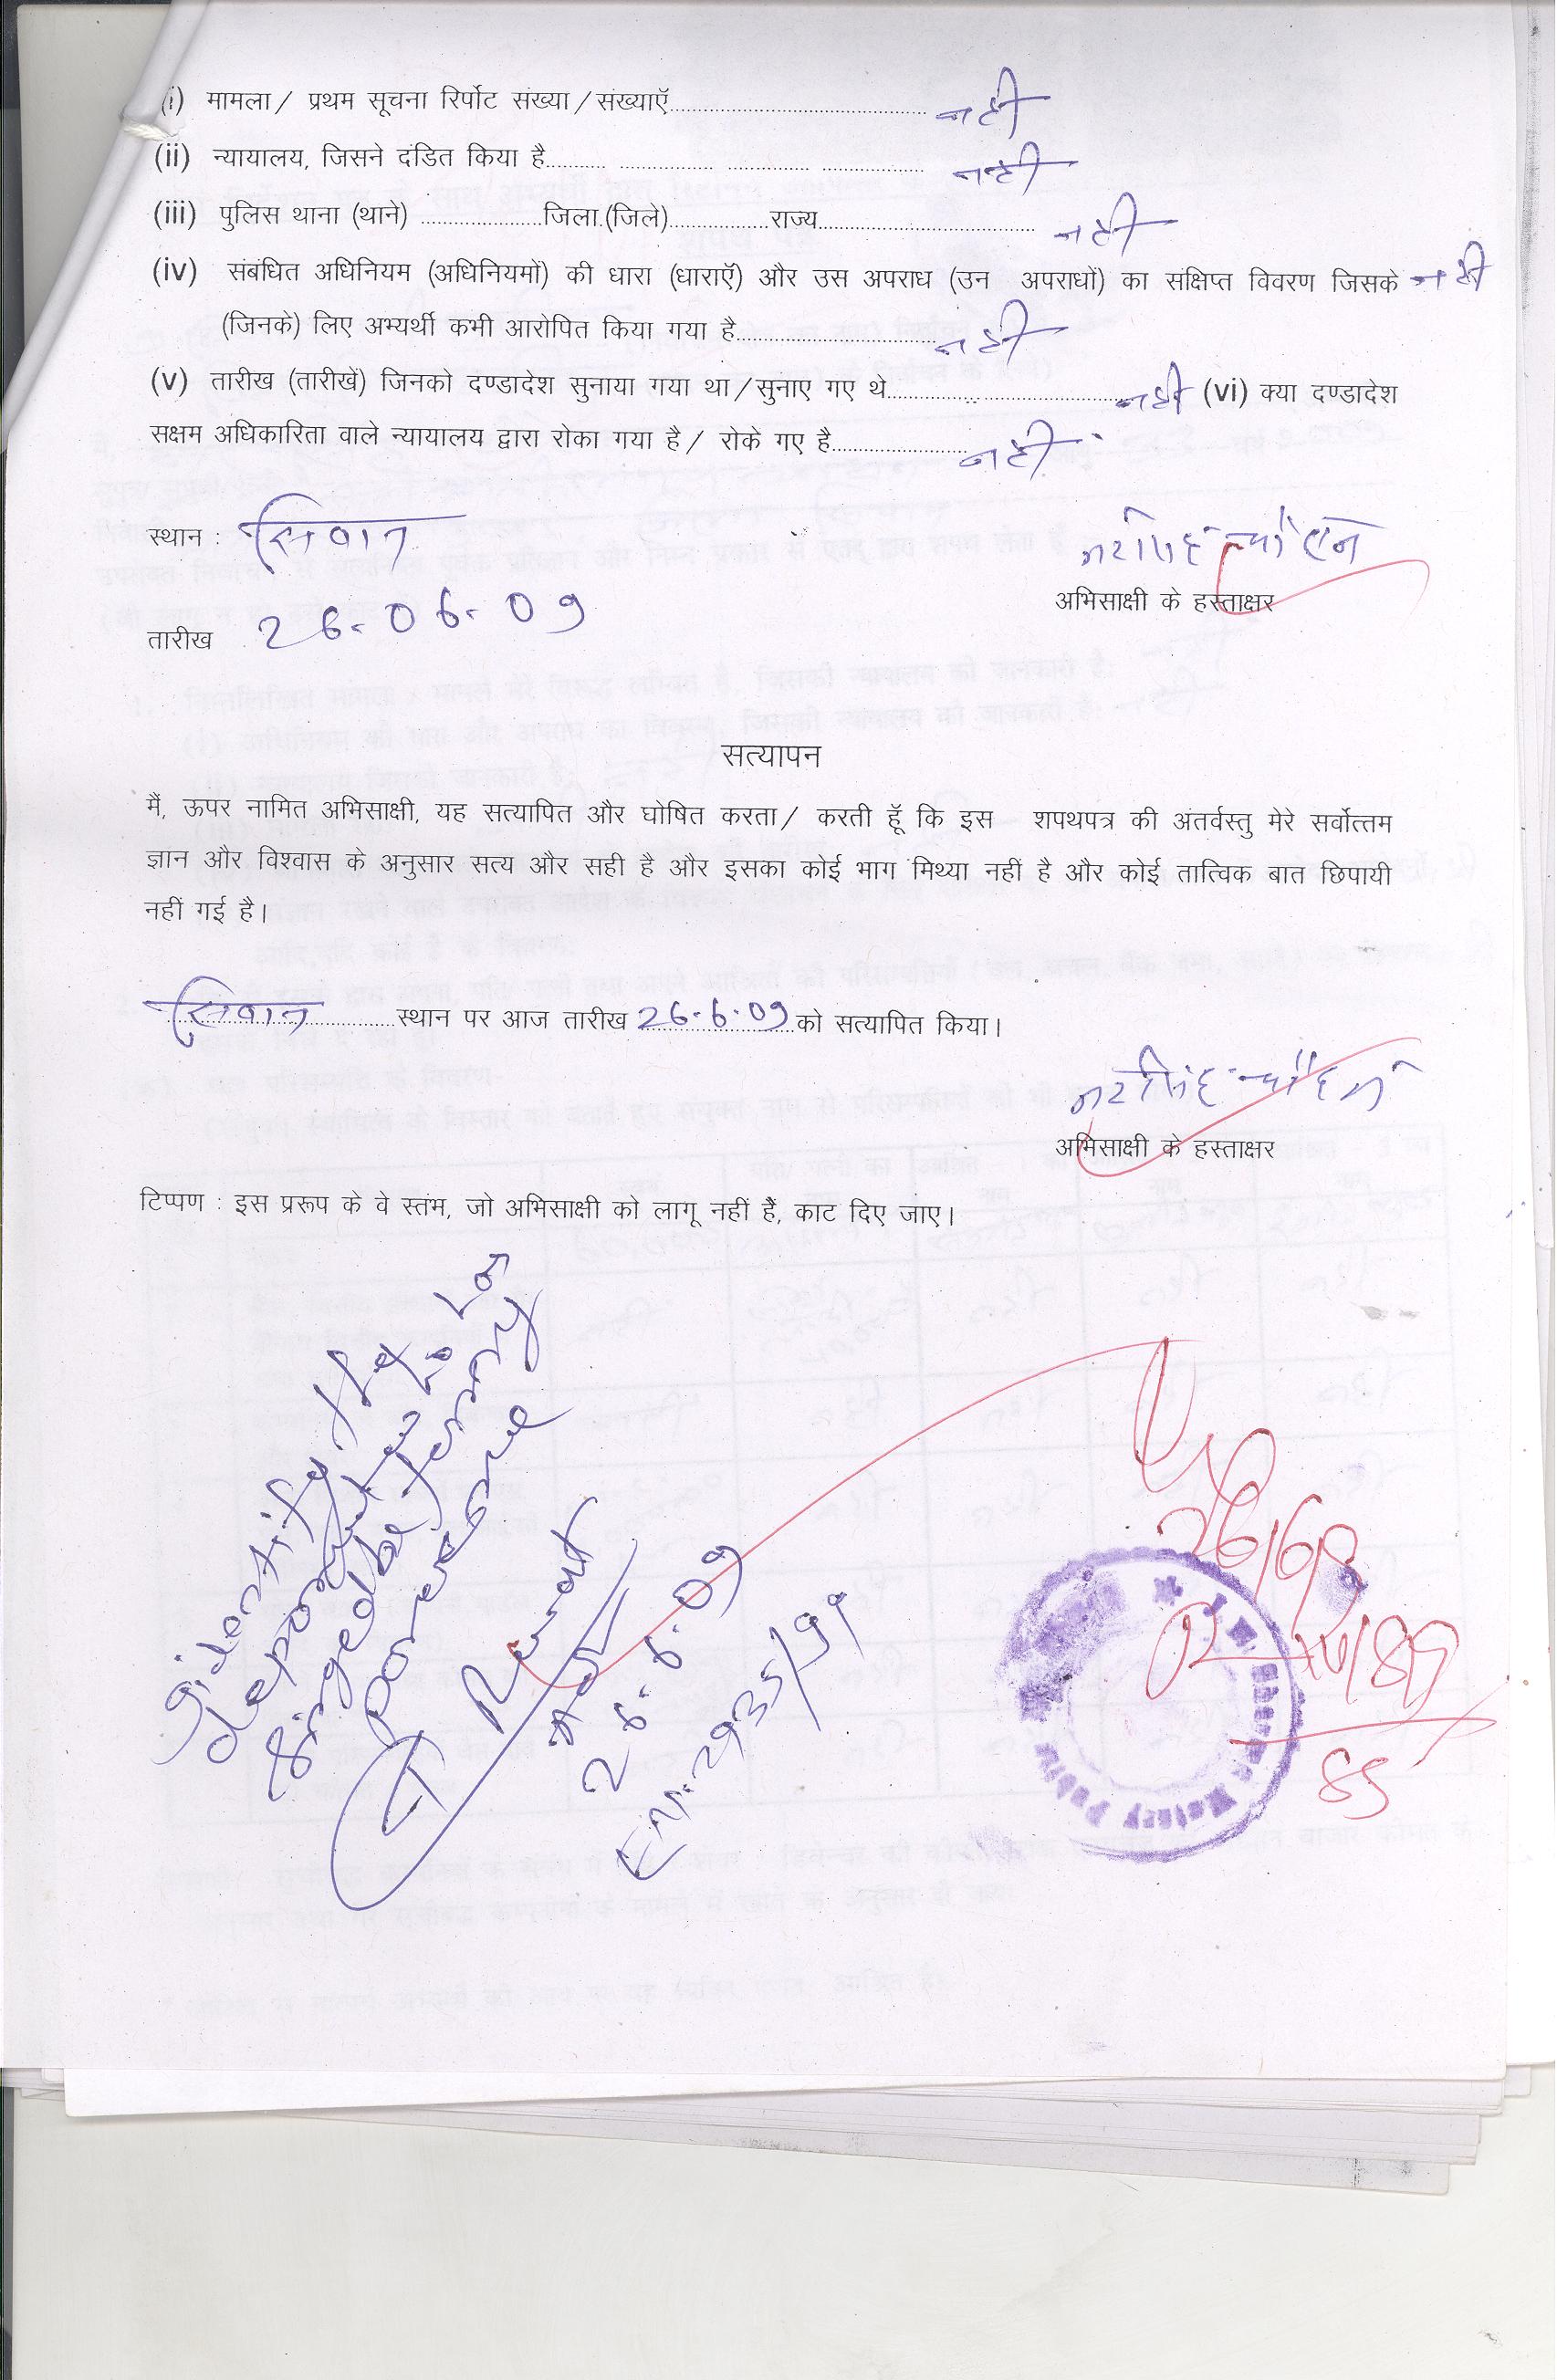 (i) मामला / प्रथम सूचना रिर्पोट संख्या / संख्याऍ.......................................... नही
(ii) न्यायालय, जिसने दंडित किया है.......... ................ .............. .................. नही
(iii) पुलिस थाना (थाने) .....................जिला.(जिले).................राज्य..................................... नही
(iv) संबंधित अधिनियम (अधिनियमों) की धारा (धाराऍ) और उस अपराध (उन अपराधों) का संक्षिप्त विवरण जिसके नही
(जिनके) लिए अभ्यर्थी कभी आरोपित किया गया है................................... नही
(v) तारीख (तारीखें) जिनको दण्डादेश सुनाया गया था / सुनाए गए थे....................................... नही (vi) क्या दण्डादेश
सक्षम अधिकारिता वाले न्यायालय द्वारा रोका गया है / रोके गए है....................... नही
स्थान : सिवान
अभिसाक्षी के हस्ताक्षर
तारीख 26.06.09
सत्यापन
मैं, ऊपर नामित अभिसाक्षी, यह सत्यापित और घोषित करता / करती हूँ कि इस शपथपत्र की अंतर्वस्तु मेरे सर्वोत्तम
ज्ञान और विश्वास के अनुसार सत्य और सही है और इसका कोई भाग मिथ्या नहीं है और कोई तात्विक बात छिपायी
नहीं गई है।
सिवान ..............स्थान पर आज तारीख 26.6.09 को सत्यापित किया।
अभिसाक्षी के हस्ताक्षर
टिप्पण : इस प्ररूप के वे स्तंभ, जो अभिसाक्षी को लागू नहीं हैं, काट दिए जाए।
identify the
deponent who has
singed before me
26.6.09
Notary Public